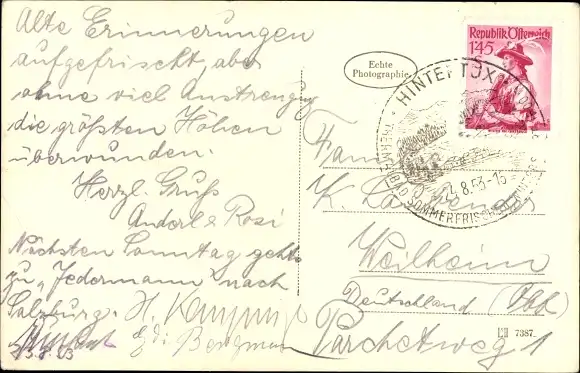 Alte Erinnerungen
aufgefrischt, aber
ohne viel Anstrengung
die größten Höhen
überwunden.
Herzl. Gruß
Anderl & Rosi
Nächsten Sonntag gehts
zu "Jedermann" nach
Salzburg. H.
Bergmann
Echte
Photographie
Republik Österreich
1'45
HINTERTUX
THERMALBAD SOMMERFRISCHE
8.53-15
Fam
K.
Weilheim
Deutschland (Obb)
Parchetweg 1
7387.